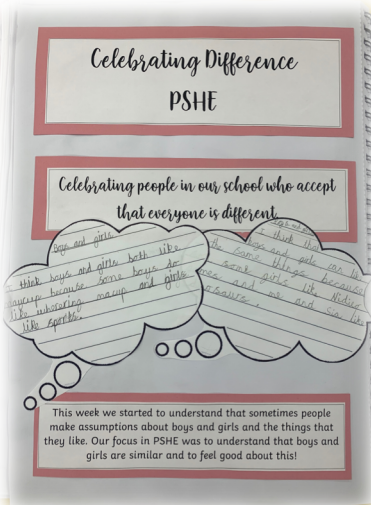 Celebrating Difference
PSHE
Celebrating people in our school who accept
that everyone is different
Boys and girls
think boys and girls both like
because some boys do
like wearing makeup and girls
like sports.
Boys and girls
I think that
boys and girls can like
the same things because
some girls like
and we and sia like
This week we started to understand that sometimes people
make assumptions about boys and girls and the things that
they like. Our focus in PSHE was to understand that boys and
girls are similar and to feel good about this!